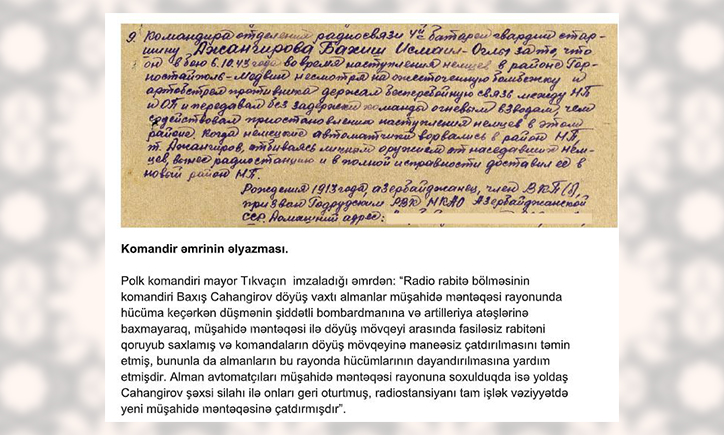 9. Командира отделения радиосвязи 4й батареи гвардии стар-
шину Джангирова Бахыш Исмаил-Оглы за то, что
он в бою 6.10.43 года во время наступления немцев в районе Гор-
ностайполь-Медвин несмотря на ожесточенную бомбежку и
артобстрел противника держал бесперебойную связь между НП
и ОП и передавал без задержек команды огневым взводам, чем
содействовал приостановлению наступления немцев в этом
районе. Когда немецкие автоматчики ворвались в район НП
т. Джангиров, отбиваясь личным оружием от наседавших нем-
цев, вынес радиостанцию и в полной исправности доставил её в
новый район НП.
Рождения 1913 года, азербайджанец, член ВКП(б),
призван РВК НКАО Азербайджанской
ССР. Домашний адрес:
Komandir əmrinin əlyazması.
Polk komandiri mayor Tıkvaçın imzaladığı əmrdən: “Radio rabitə bölməsinin
komandiri Baxış Cahangirov döyüş vaxtı almanlar müşahidə məntəqəsi rayonunda
hücüma keçərkən düşmənin şiddətli bombardmanına və artilleriya atəşlərinə
baxmayaraq, müşahidə məntəqəsi ilə döyüş mövqeyi arasında fasiləsiz rabitəni
qoruyub saxlamış və komandaların döyüş mövqeyinə maneəsiz çatdırılmasını təmin
etmiş, bununla da almanların bu rayonda hücümlarının dayandırılmasına yardım
etmişdir. Alman avtomatçıları müşahidə məntəqəsi rayonuna soxulduqda isə yoldaş
Cahangirov şəxsi silahı ilə onları geri oturtmuş, radiostansiyanı tam işlək vəziyyətdə
yeni müşahidə məntəqəsinə çatdırmışdır”.